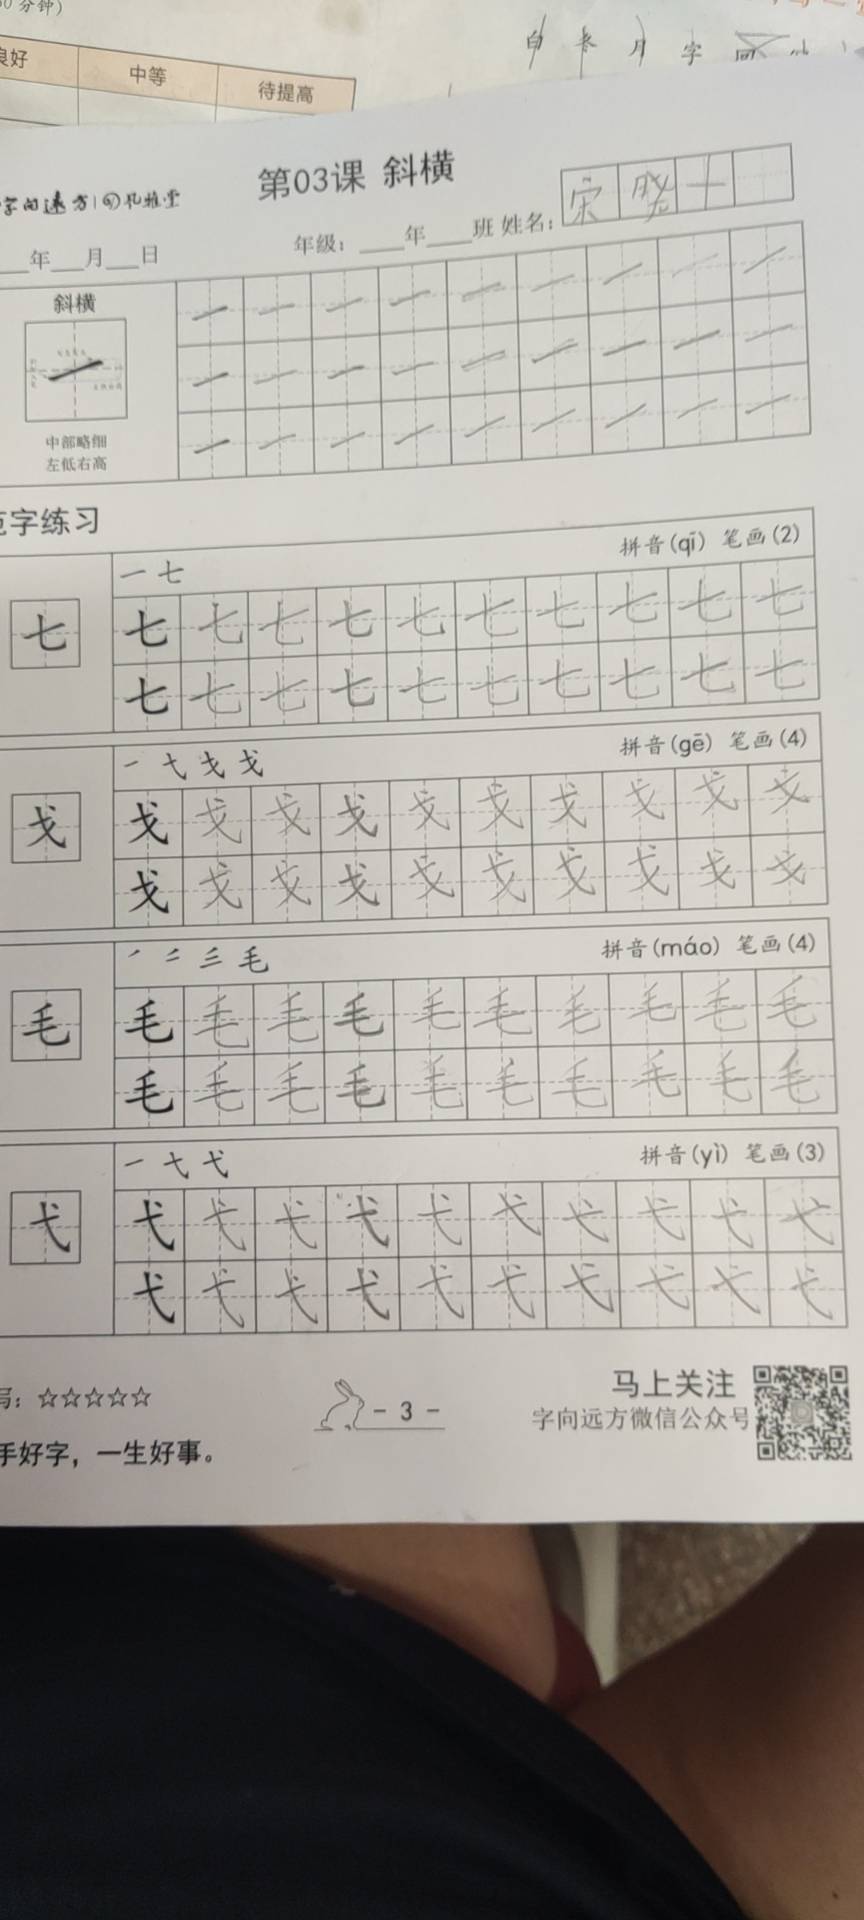 0分钟)
良好 中等 待提高
白 月 字
第03课 斜横
字向远方
年 月 日 年级: 年 班 姓名: 宋晓十
斜横
中部略细
左低右高
范字练习
一 七 拼音(qī) 笔画(2)
七 七 七 七 七 七 七 七 七 七 七
七 七 七 七 七 七 七 七 七 七
拼音(gē) 笔画(4)
戈 戈 戈 戈 戈 戈 戈 戈 戈 戈 戈
戈 戈 戈 戈 戈 戈 戈 戈 戈 戈
毛 拼音(máo) 笔画(4)
毛 毛 毛 毛 毛 毛 毛 毛 毛 毛 毛
毛 毛 毛 毛 毛 毛 毛 毛 毛 毛
弋 拼音(yì) 笔画(3)
弋 弋 弋 弋 弋 弋 弋 弋 弋 弋 弋
弋 弋 弋 弋 弋 弋 弋 弋 弋 弋
写: ☆☆☆☆☆
- 3 -
马上关注
字向远方微信公众号
手好字，一生好事。